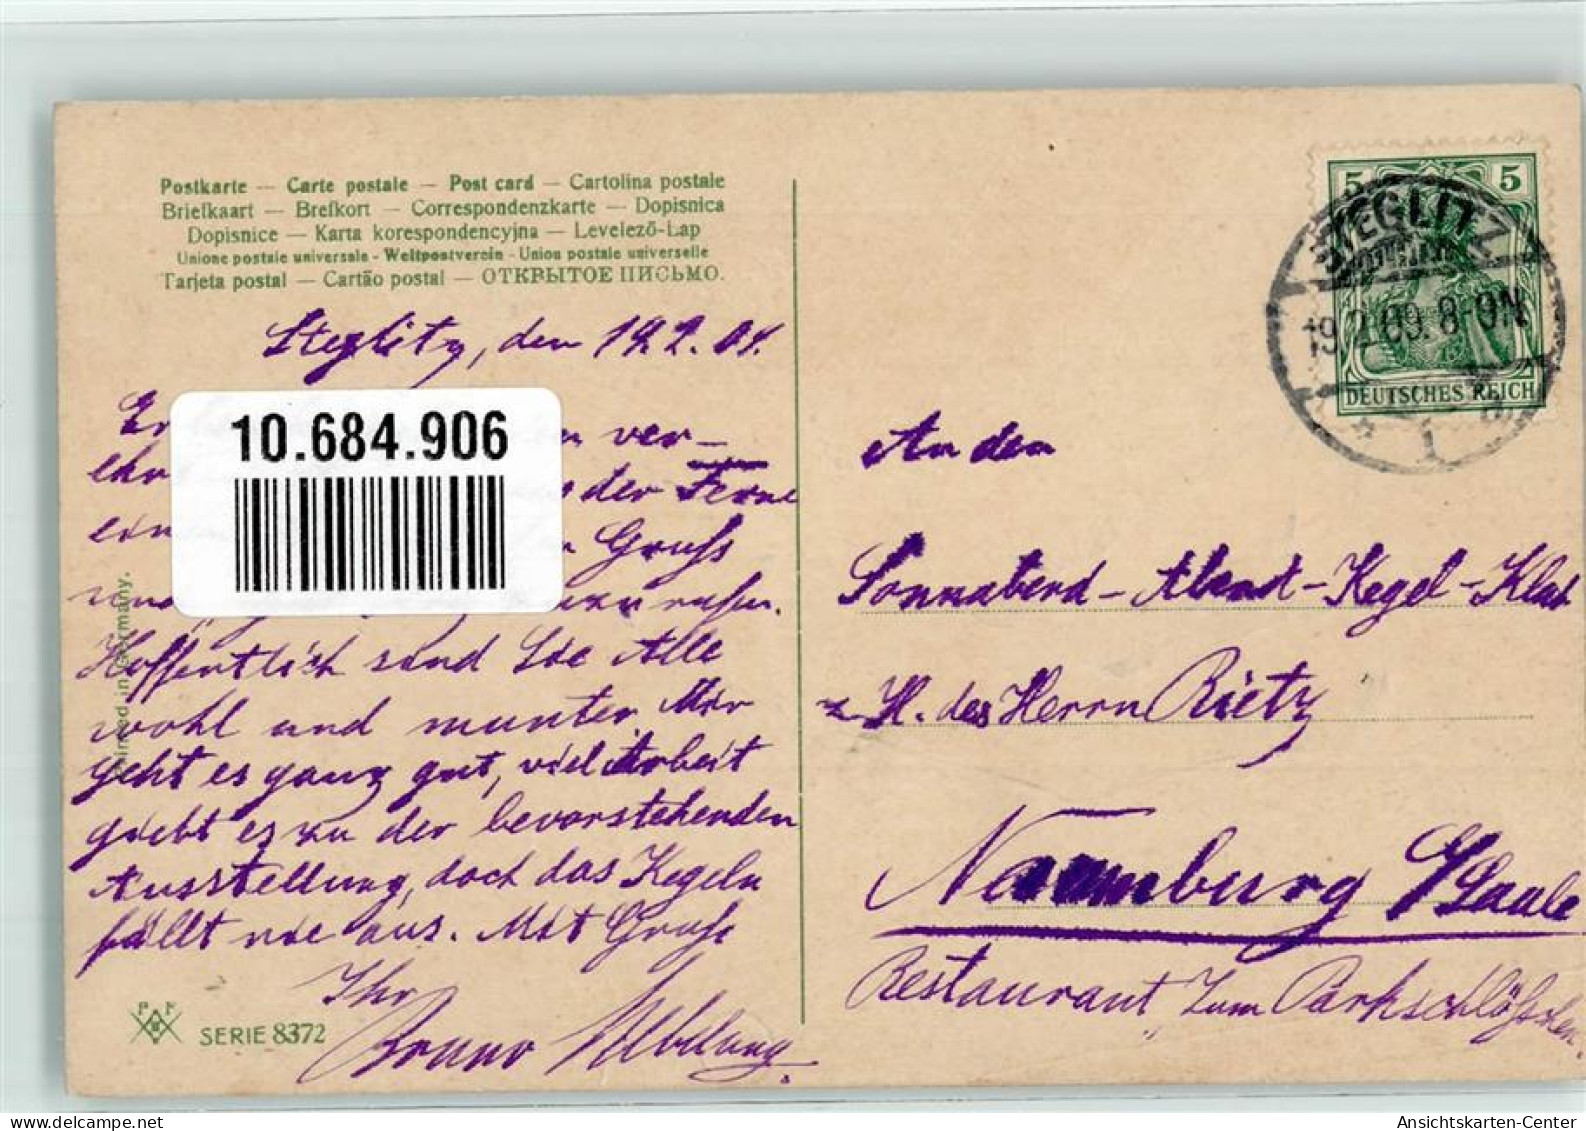 Postkarte — Carte postale — Post card — Cartolina postale
Briefkaart — Brefkort — Correspondenzkarte — Dopisnica
Dopisnice — Karta korespondencyjna — Levelező-Lap
Unione postale universale - Weltpostverein - Union postale universelle
Tarjeta postal — Cartão postal — ОТКРЫТОЕ ПИСЬМО.
Steglitz, den 19.2.09.
ver-
der Ferne
Gruss
Hoffentlich sind Sie Alle
wohl und munter. Mir
geht es ganz gut, viel Arbeit
giebt es zu der bevorstehenden
Ausstellung, doch das Kegeln
fällt nie aus. Mit Gruss
Ihr
Bruno
10.684.906
Printed in Germany.
P F B
SERIE 8372
5 5
DEUTSCHES REICH
STEGLITZ
19.2.09. 8-9N
* 1
An den
Sonnabend-Abend-Kegel-Klub
z. H. des Herrn Rietz
Naumburg S/Saale
Restaurant „Zum Parkschlößchen.
oldthing.de
Ansichtskarten-Center